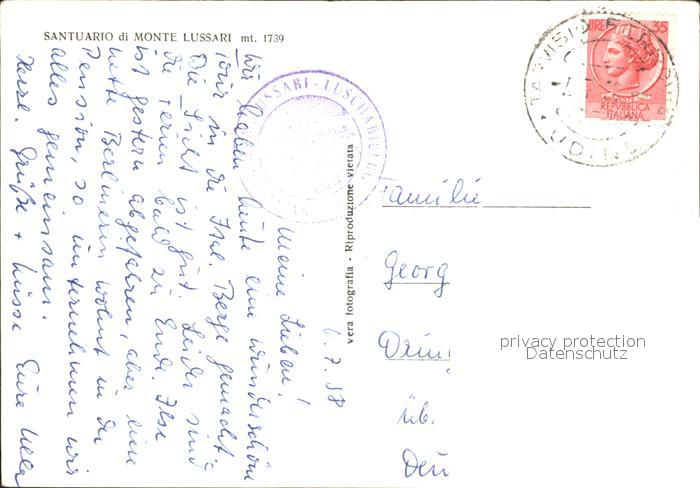 SANTUARIO di MONTE LUSSARI mt. 1789
6.7.58
Meine Lieben!
Wir haben heute eine wunderschöne
Tour in die Ital. Berge gemacht.
Die Sicht ist gut. Leider sind
die Ferien bald zu Ende. Ilse
ist gestern abgefahren, aber eine
nette Berlinerin wohnt in der
Pension, so unternehmen wir
alles gemeinsam.
Herzl. Grüße + Küsse Eure Ulla
vera fotografia - Riproduzione vietata
LUSSARI - LUSCHARI
TARVISIO
UDINE
LIRE 35
REPUBBLICA
ITALIANA
Familie
Georg
üb.
privacy protection
Datenschutz